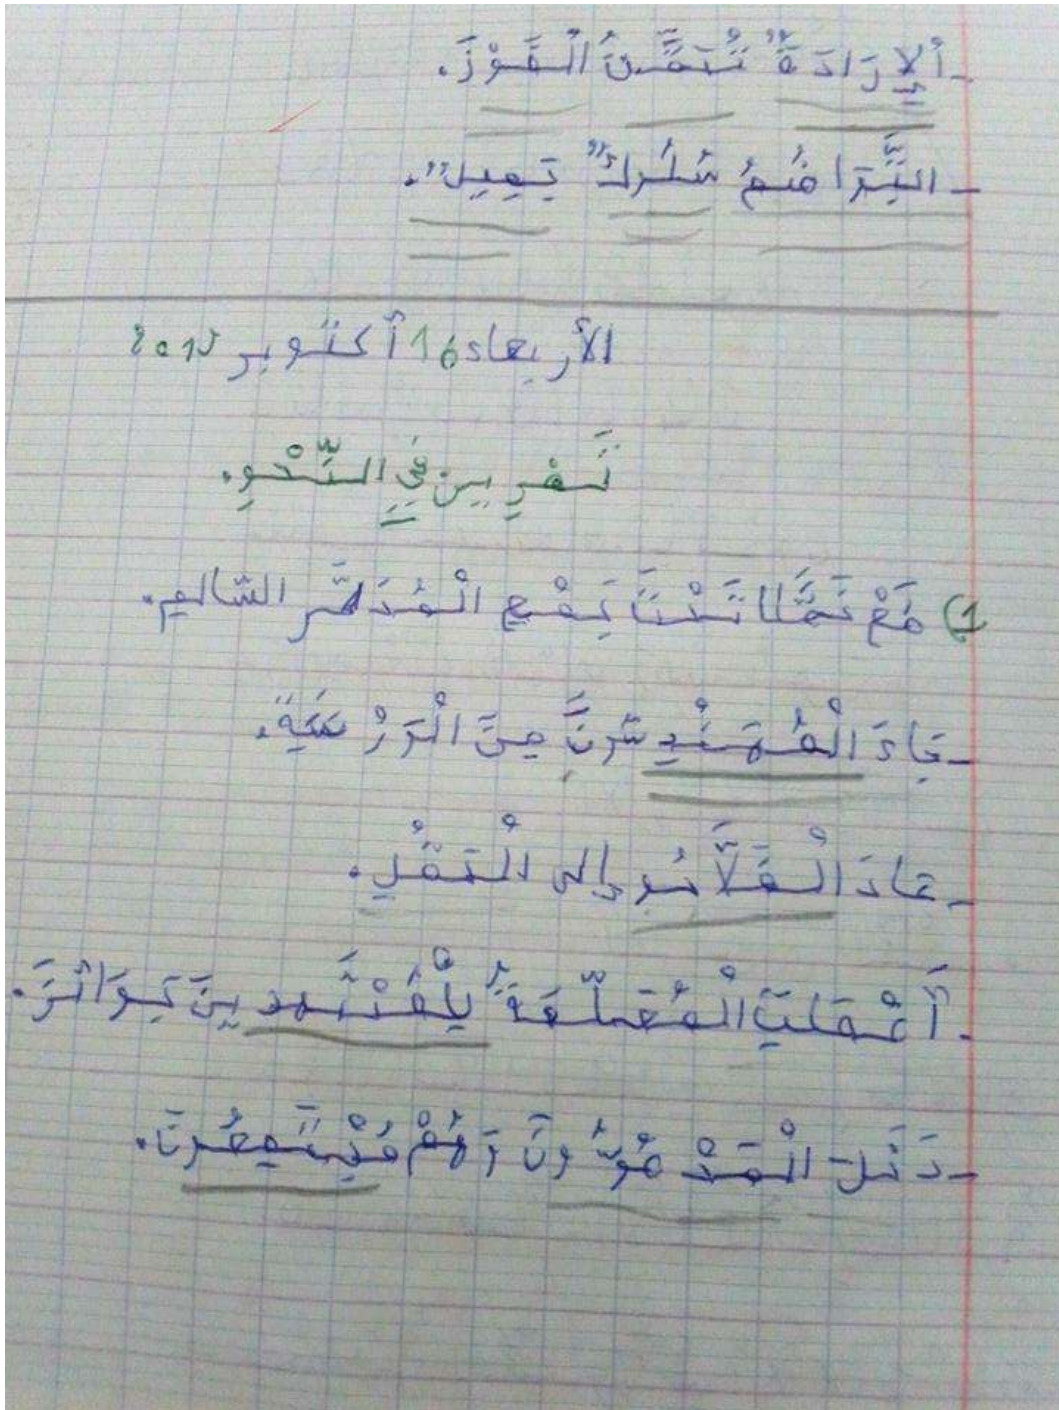 - ألإِرَادَةُ تُتَمِّنُ الْفَوْزَ.
- التَّوَاضُعُ سُلُوكٌ جَمِيلٌ.
الأربعاء 16 أكتوبر 2019
تَمْرِين فِي النَّحْوِ.
1) ضَعْ خَطًّا تَحْتَ جَمْعِ الْمُذَكَّر السَّالِمِ.
- عَادَ الْمُهَنْدِسُونَ مِنَ الْوَرْشَةِ.
- عَادَ الْفَلَّاحُو إلى الْحَقْلِ.
- أَعْطَتِ الْمُعَلِّمَةُ لِلْمُجْتَهِدِينَ جَوَائِزَ.
- دَخَلَ الْمَدْعُوُّونَ وَهُمْ مُبْتَسِمُونَ.